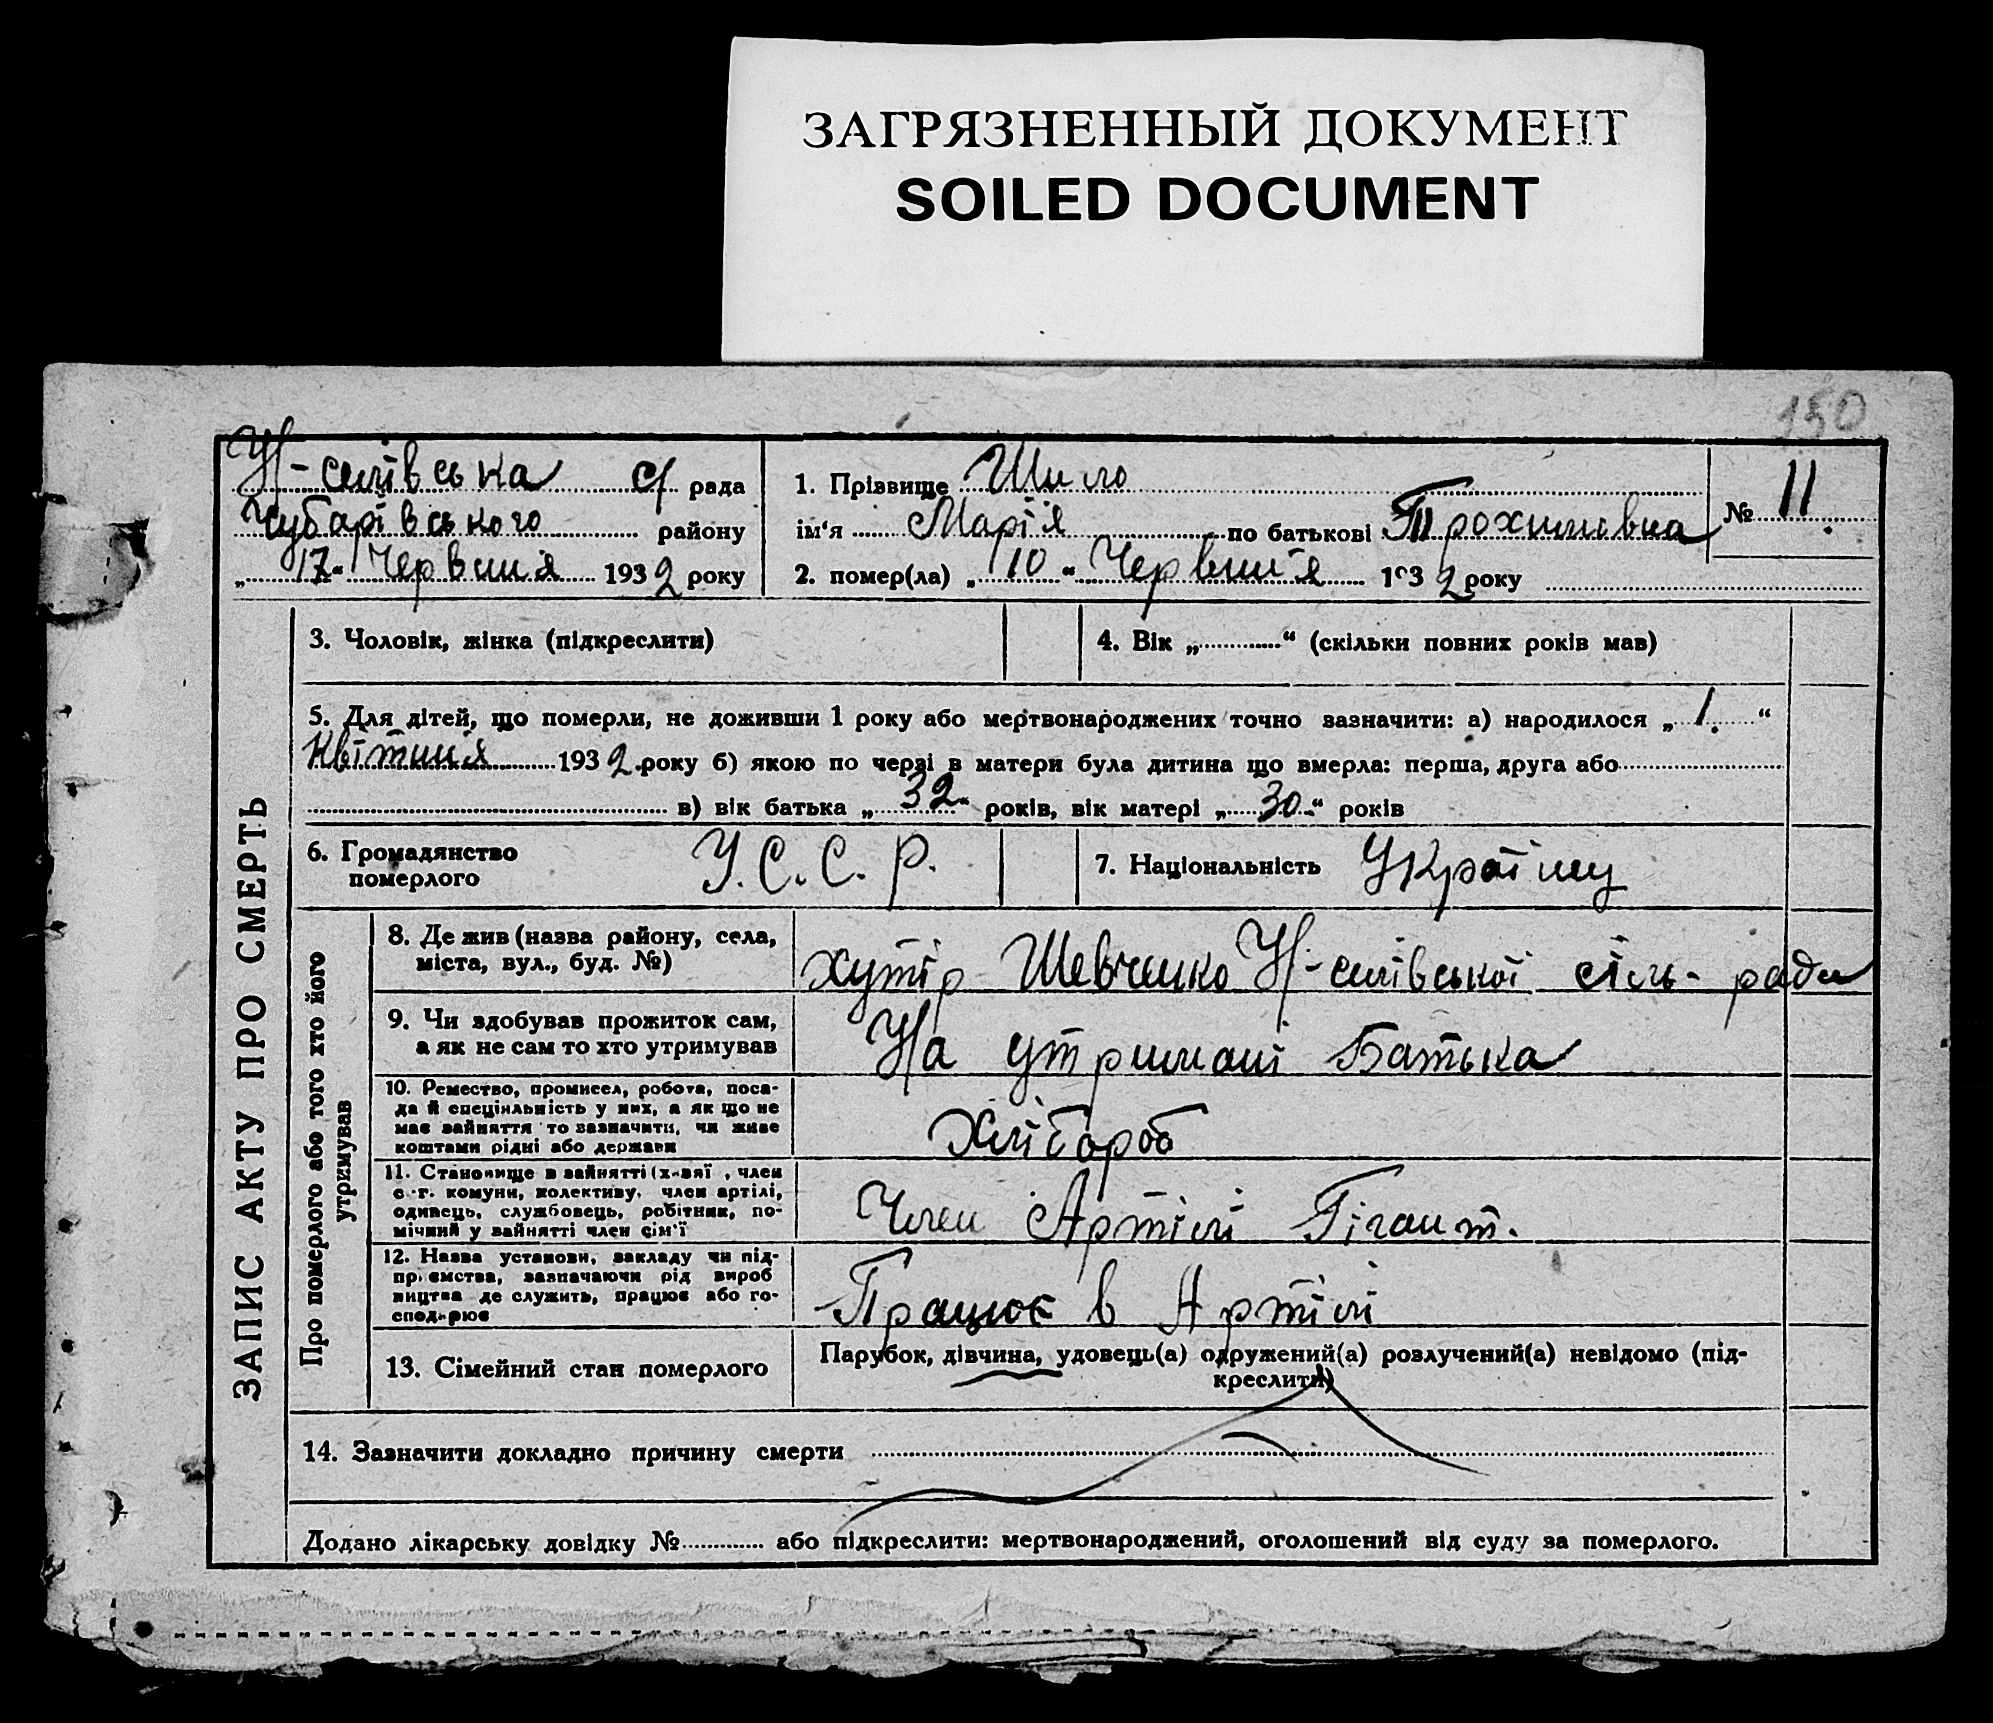 ЗАГРЯЗНЕННЫЙ ДОКУМЕНТ
SOILED DOCUMENT
150
Н-селівська с/ рада
Чубарівського району
„17“ Червння 1932 року
1. Прізвище Шило
ім‘я Марія по батькові Трохимівна
№ 11.
2. помер(ла) „10“ Червння 1932 року
ЗАПИС АКТУ ПРО СМЕРТЬ
3. Чоловік, жінка (підкреслити)
4. Вік „............“ (скільки повних років мав)
5. Для дітей, що померли, не доживши 1 року або мертвонароджених точно зазначити: а) народилося „1.“
Квітння 1932 року б) якою по черзі в матери була дитина що вмерла: перша, друга або
в) вік батька „32“ років, вік матері „30“ років
6. Громадянство
померлого
У.С.С.Р.
7. Національність Україну
Про померлого або того хто його
утримував
8. Де жив (назва району, села,
міста, вул., буд. №)
хутір Шевченко Н-селівської сіль-ради
9. Чи здобував прожиток сам,
а як не сам то хто утримував
На утримані Батька
10. Ремество, промисел, робота, поса-
да й спеціяльність у них, а як що не
має зайняття то зазначити, чи живе
коштами рідні або держави
Хлібороб
11. Становище в зайнятті (х-вяї , член
с.-г. комуни, колективу, член артілі,
одинець, службовець, робітник, по-
мічний у зайнятті член сім‘ї
Член Артілі Гігант.
12. Назва установи, закладу чи під-
приємства, зазначаючи рід вироб
ництва де служить, працює або го-
сподарює
Працює в Артілі
13. Сімейний стан померлого
Парубок, дівчина, удовець(а) одружений(а) розлучений(а) невідомо (під-
креслити)
14. Зазначити докладно причину смерти
Додано лікарську довідку №............ або підкреслити: мертвонароджений, оголошений від суду за померлого.